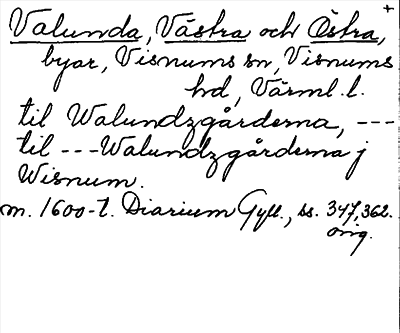 Valunda, Västra och Östra, +
byar, Visnums sn, Visnums
hd, Värml. l.
til Walundzgårderna, ---
til --- Walundzgårderna j
Wisnum.
m. 1600-t. Diarium Gyll., ss. 347, 362.
orig.